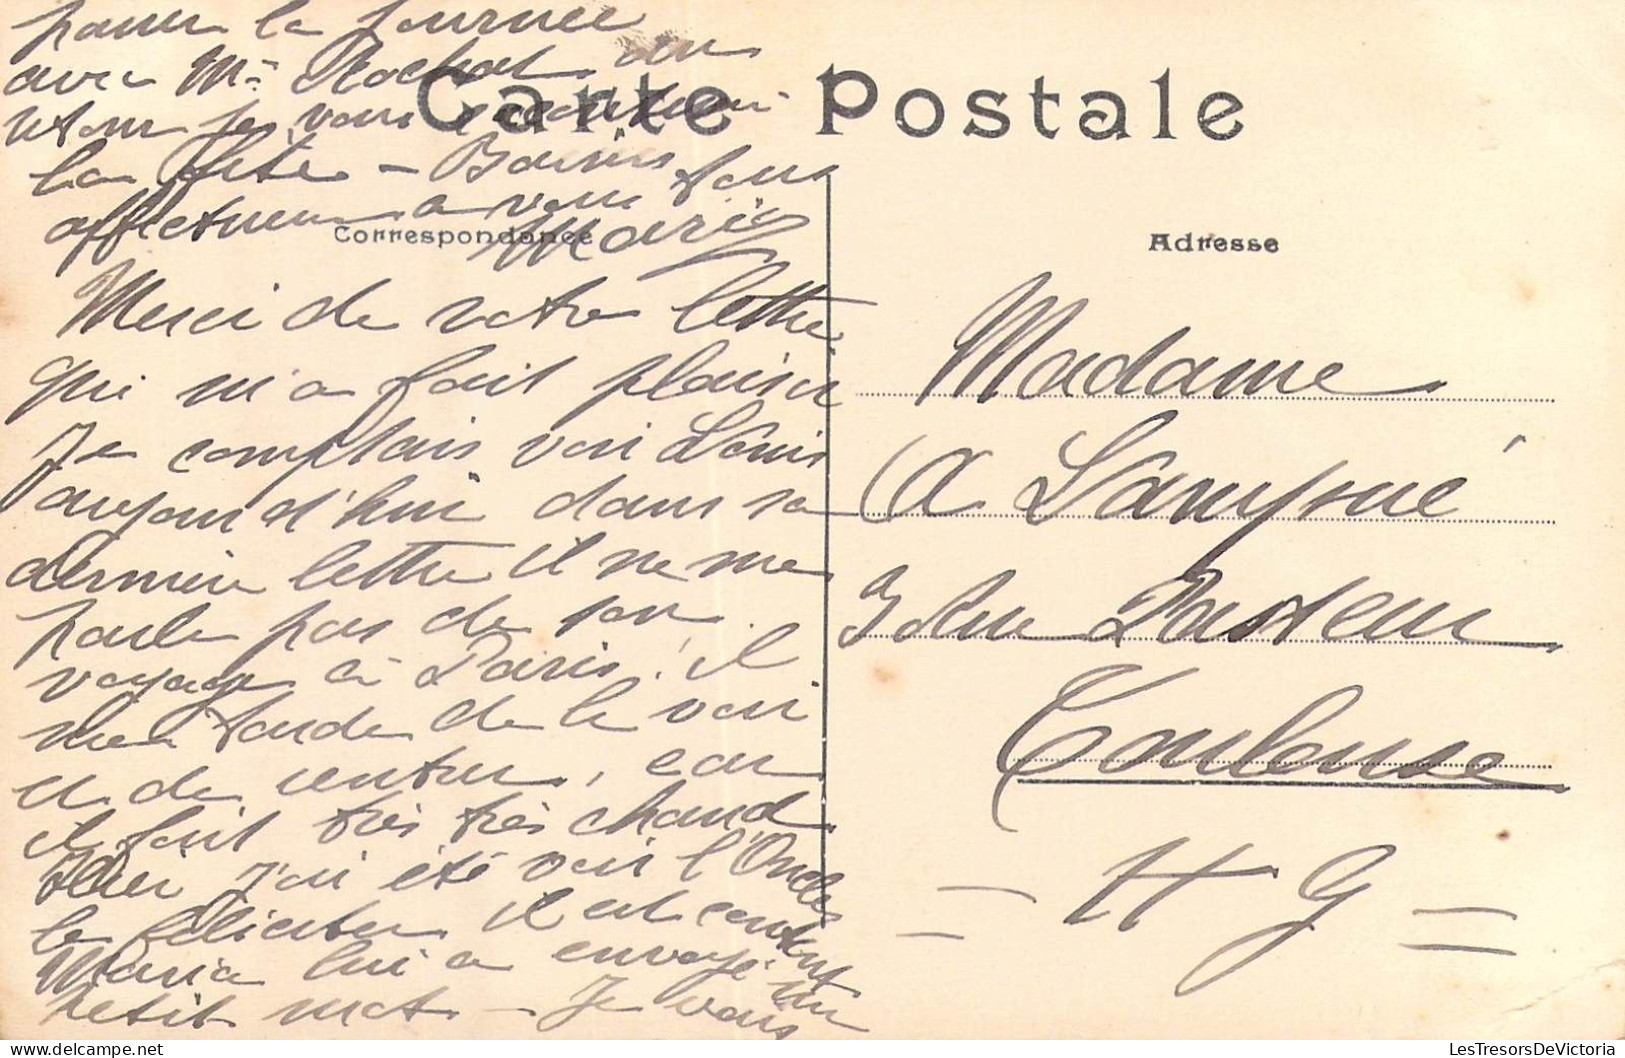 pour la journée
avec Mr Rochat au
retour je vous
la fête – Baisers
affectueux à vous tous
Marie
Carte Postale
Correspondance
Merci de votre lettre
qui m'a fait plaisir
Je comptais voir Louis
aujourd'hui dans sa
dernière lettre il ne me
parle pas de son
voyage à Paris! il
me tarde de le voir
et de rentrer, car
il fait très très chaud
Hier j'ai été voir l'Oncle
le féliciter il est content
Maria lui a envoyé un
petit mot – Je vais
Adresse
Madame
A
3 Rue Pasteur
Toulouse
– H G =
LesTresorsDeVictoria